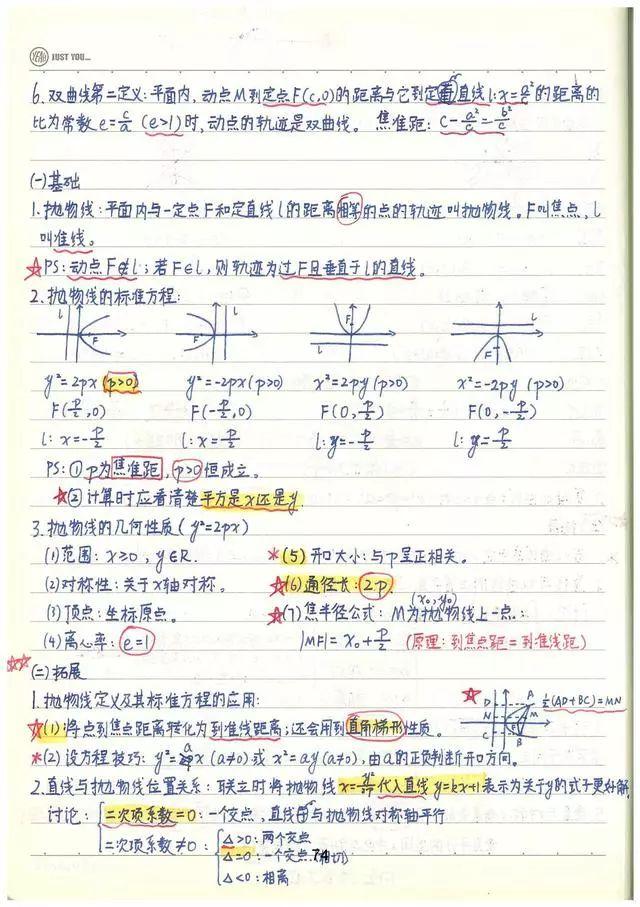 YEAH JUST YOU...
6. 双曲线第二定义：平面内，动点M到定点F(c,0)的距离与它到定直线l：x=a²/c的距离的
比为常数e=c/a (e>1)时，动点的轨迹是双曲线。 焦准距：c-a²/c=b²/c
(一)基础
1. 抛物线：平面内与一定点F和定直线l的距离相等的点的轨迹叫抛物线。F叫焦点，l
叫准线。
☆PS：动点F∉l；若F∈l，则轨迹为过F且垂直于l的直线。
2. 抛物线的标准方程：
l F l F l F l F
y²=2px (p>0) y²=-2px (p>0) x²=2py (p>0) x²=-2py (p>0)
F(p/2,0) F(-p/2,0) F(0,p/2) F(0,-p/2)
l：x=-p/2 l：x=p/2 l：y=-p/2 l：y=p/2
PS：① p为焦准距，p>0恒成立。
☆② 计算时应看清楚平方是x还是y.
3. 抛物线的几何性质(y²=2px)
(1)范围：x≥0，y∈R. *(5) 开口大小：与p呈正相关。
(2)对称性：关于x轴对称。 ☆(6) 通径长：2p.
(3)顶点：坐标原点。 ☆(7) 焦半径公式：M(x₀,y₀)为抛物线上一点：
(4)离心率：e=1 |MF|=x₀+p/2 (原理：到焦点距=到准线距)
☆☆(二)拓展
1. 抛物线定义及其标准方程的应用：
☆ D N C A M B F ½(AD+BC)=MN
☆(1)将点到焦点距离转化为到准线距离；还会用到直角梯形性质。
*(2) 设方程技巧：y²=ax (a≠0)或 x²=ay(a≠0)，由a的正负判断开口方向。
2. 直线与抛物线位置关系：联立时将抛物线 x=y²/2p 代入直线 y=kx+1 表示为关于y的式子更好解
讨论：二次项系数=0：一个交点，直线与抛物线对称轴平行
二次项系数≠0：Δ>0：两个交点
Δ=0：一个交点
Δ<0：相离